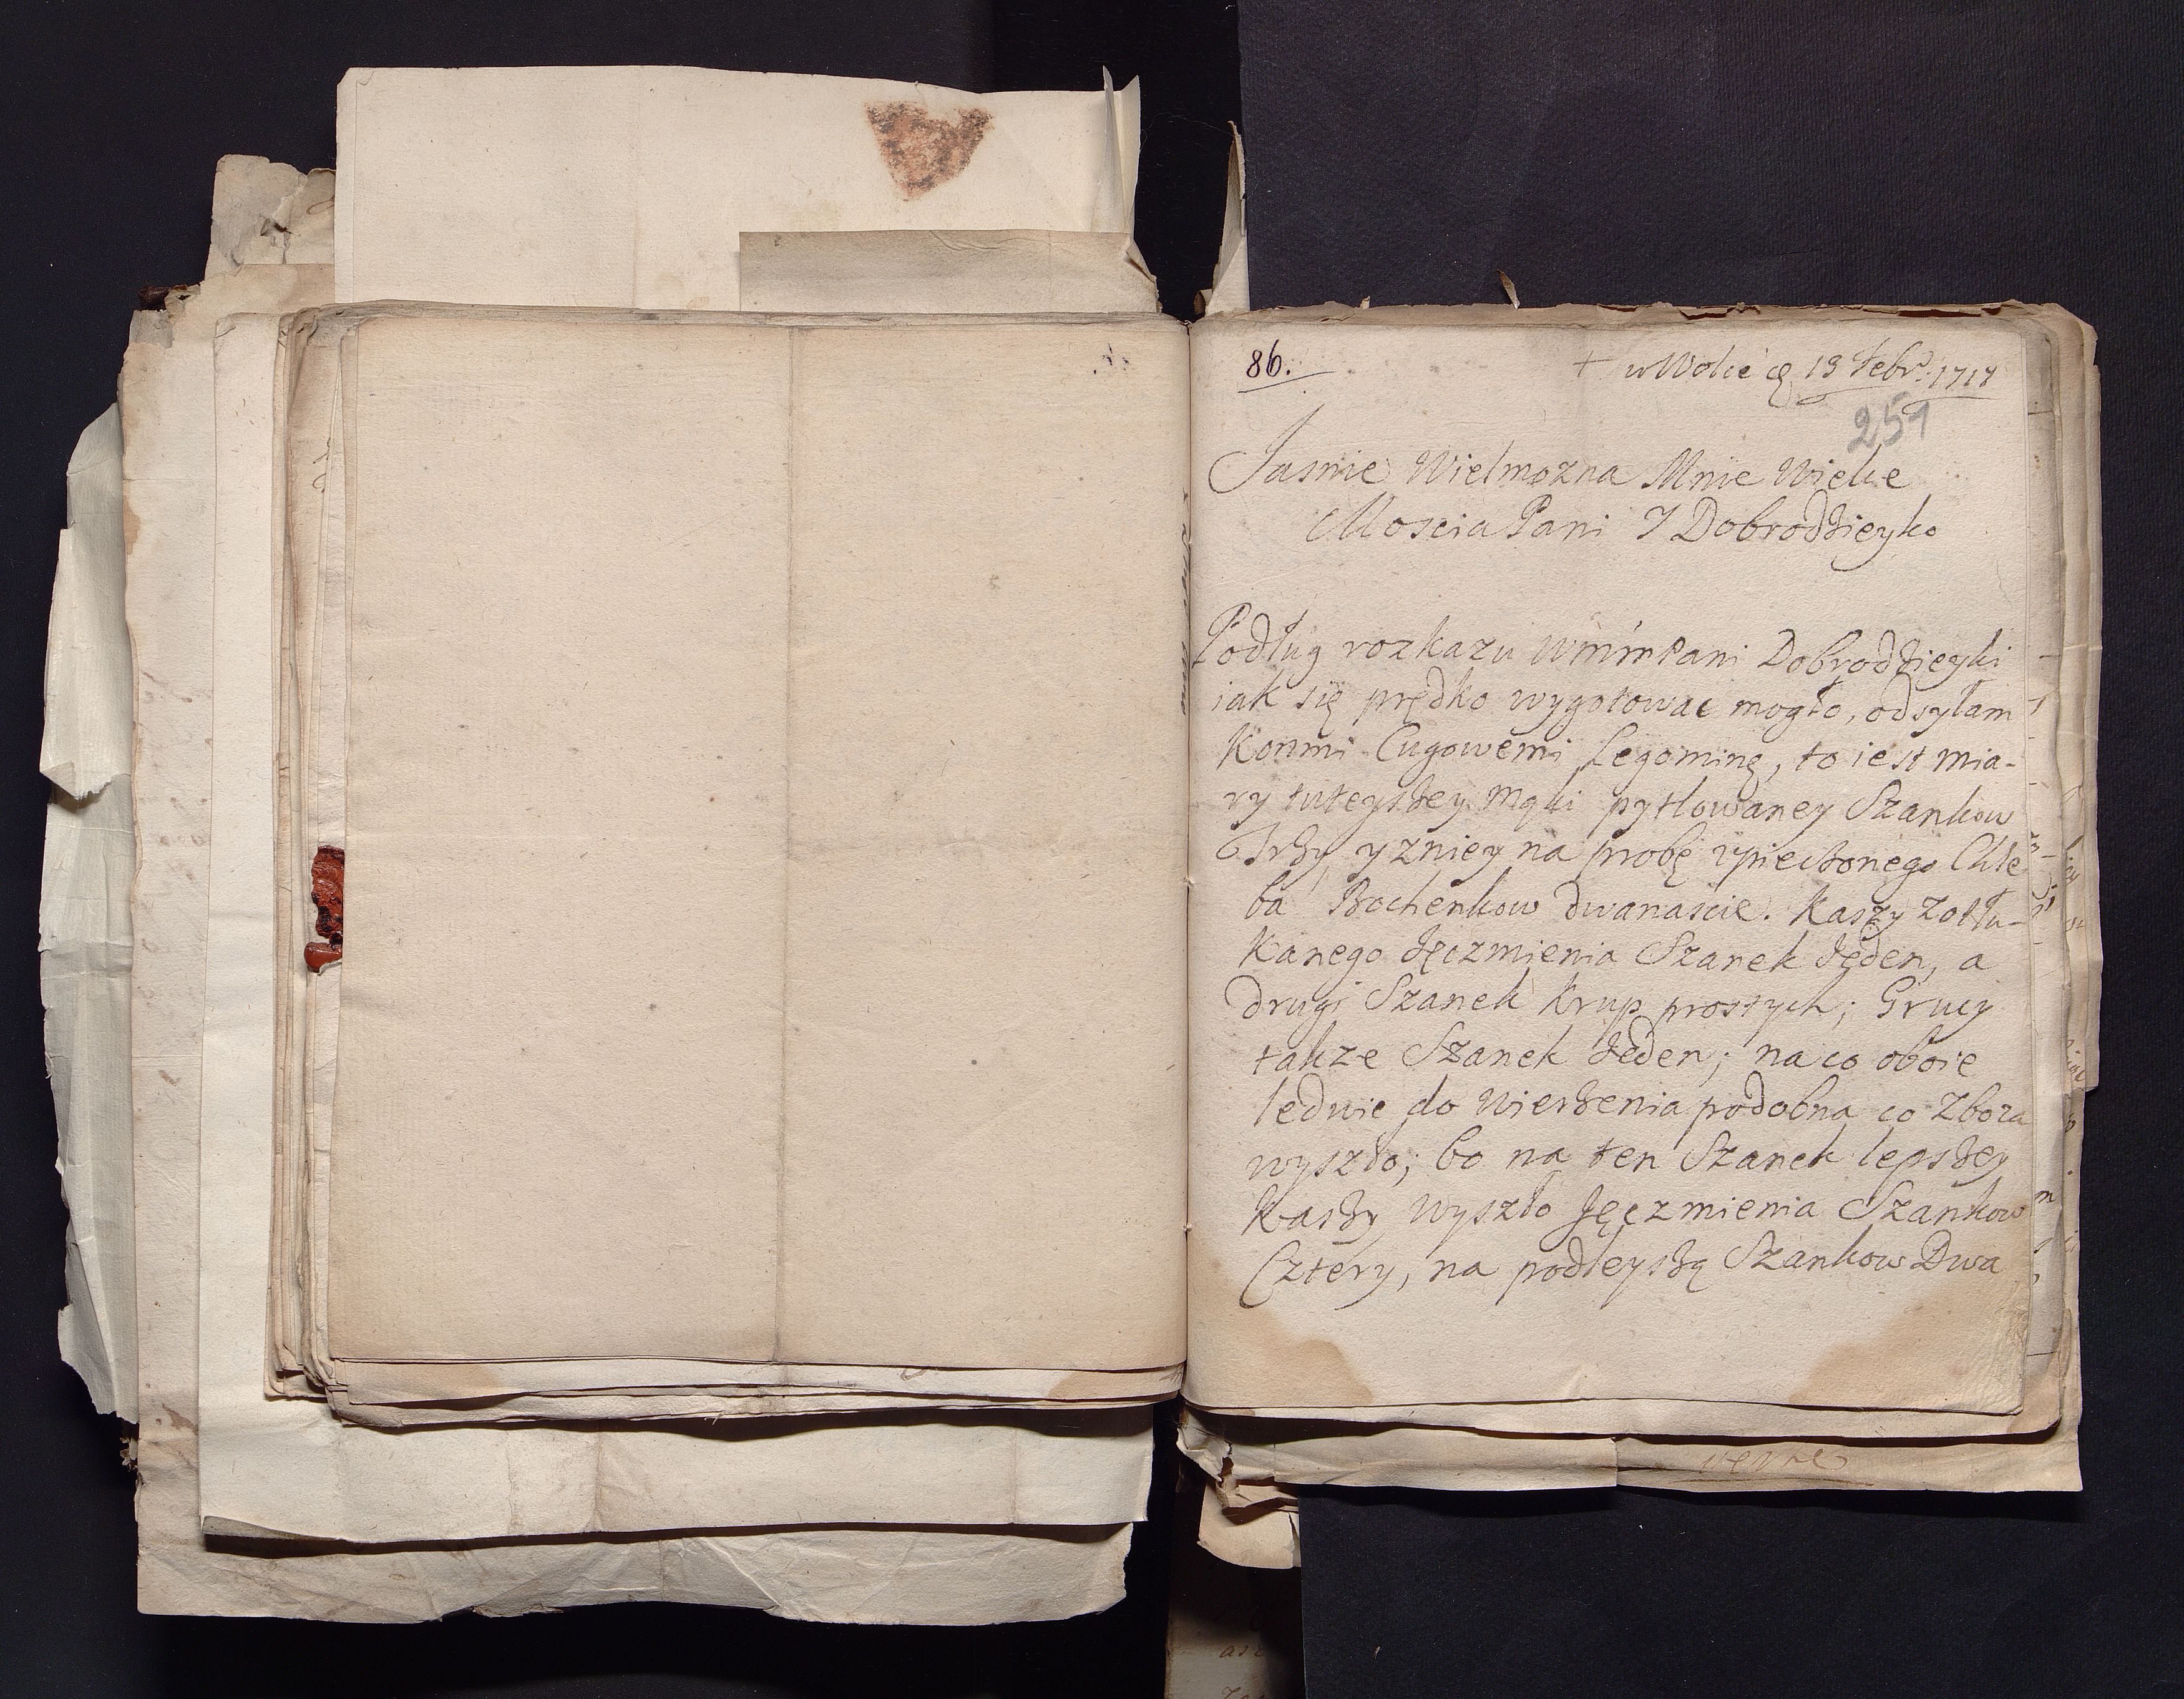 86.
+ w Wolicę 19 Febr. 1717
251
Jasnie Wielmozna Mnie Wielce
Moscia Pani I Dobrodzieyko
Podług rozkazu WMMPani Dobrodzieyki
iak się prędko wygotowac mogło, odsyłam
Konmi Cugowemi Legominę, to iest mia-
ry tuteyszey Mąki pytlowaney Szankow
Trzy, y zniey na probę vpieczonego Chle
ba Bochenkow dwanascie. Kaszy zottłu-
kanego Jęczmienia Szanek Jeden, a
drugi Szanek Krup prostych; Grucy
takze Szanek Jeden; na co oboie
ledwie do Wierzenia podobna co Zboza
wyszło; bo na ten Szanek lepszey
Kaszy wyszło Jęczmienia Szankow
Cztery, na podleyszą Szankow Dwa